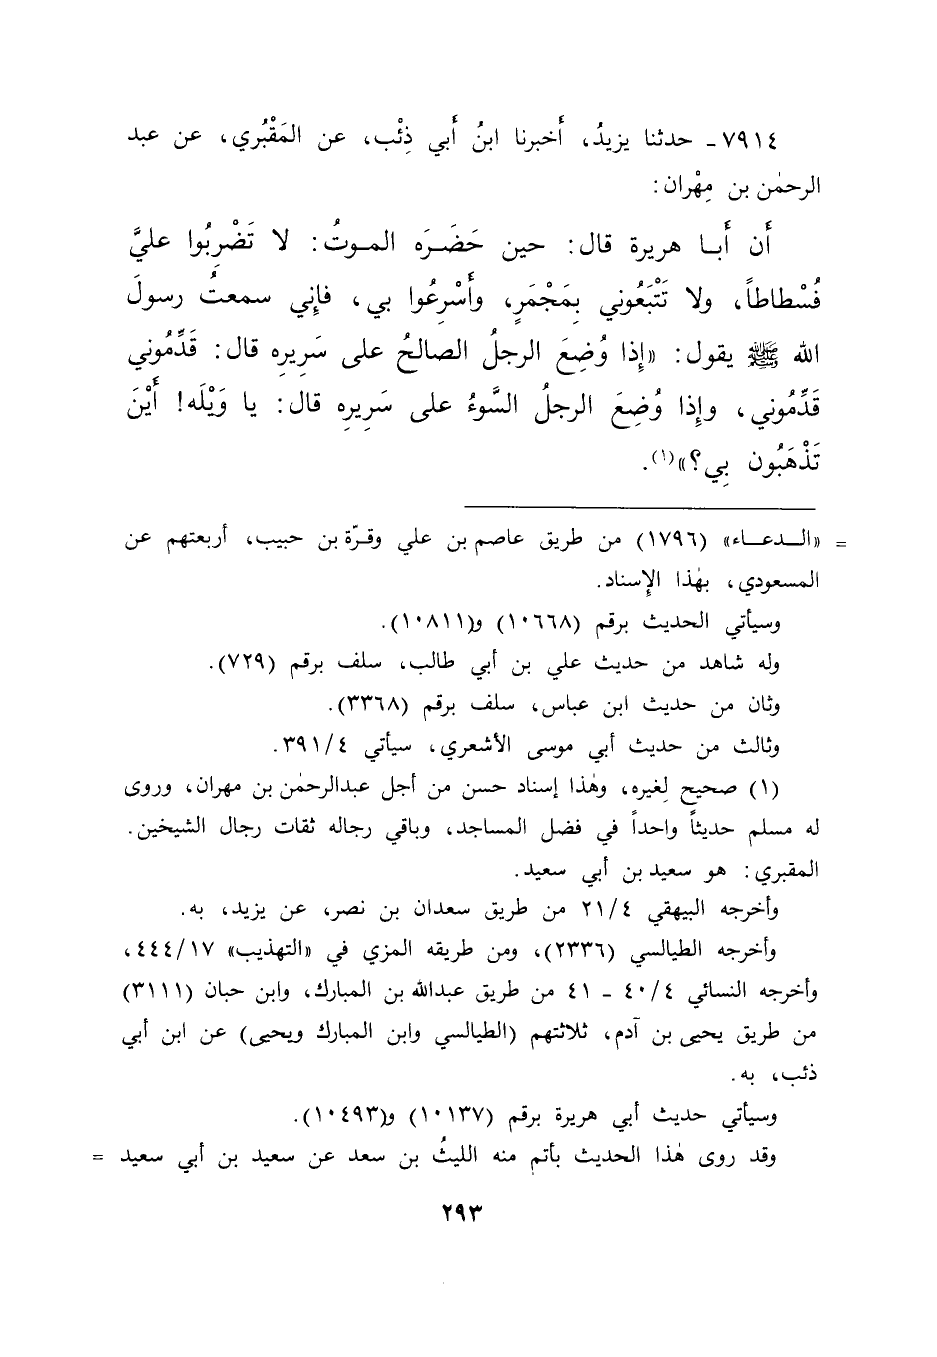 ٧٩١٤ - حدثنا يزيدُ، أَخبرنا ابنُ أَبي ذِئْب، عن المَقْبُري، عن عبد
الرحمٰن بن مِهْران:
أَن أَبا هريرة قال: حين حَضَرَه الموتُ: لا تَضْرِبُوا عليَّ
فُسْطاطاً، ولا تَتْبَعُوني بِمَجْمَرٍ، وأَسْرِعُوا بي، فإِني سمعتُ رسولَ
الله ﷺ يقول: «إِذا وُضِعَ الرجلُ الصالحُ على سَرِيرِه قال: قَدِّمُوني
قَدِّمُوني، وإِذا وُضِعَ الرجلُ السَّوءُ على سَرِيرِه قال: يا وَيْلَه! أَيْنَ
تَذْهَبُون بِي؟»(١).
= «الدعاء» (١٧٩٦) من طريق عاصم بن علي وقرّة بن حبيب، أربعتهم عن
المسعودي، بهٰذا الإِسناد.
وسيأتي الحديث برقم (١٠٦٦٨) و(١٠٨١١).
وله شاهد من حديث علي بن أبي طالب، سلف برقم (٧٢٩).
وثان من حديث ابن عباس، سلف برقم (٣٣٦٨).
وثالث من حديث أبي موسى الأشعري، سيأتي ٣٩١/٤.
(١) صحيح لِغيره، وهٰذا إسناد حسن من أجل عبدالرحمٰن بن مهران، وروى
له مسلم حديثاً واحداً في فضل المساجد، وباقي رجاله ثقات رجال الشيخين.
المقبري: هو سعيد بن أبي سعيد.
وأخرجه البيهقي ٢١/٤ من طريق سعدان بن نصر، عن يزيد، به.
وأخرجه الطيالسي (٢٣٣٦)، ومن طريقه المزي في «التهذيب» ٤٤٤/١٧،
وأخرجه النسائي ٤٠/٤ - ٤١ من طريق عبدالله بن المبارك، وابن حبان (٣١١١)
من طريق يحيى بن آدم، ثلاثتهم (الطيالسي وابن المبارك ويحيى) عن ابن أبي
ذئب، به.
وسيأتي حديث أبي هريرة برقم (١٠١٣٧) و(١٠٤٩٣).
وقد روى هٰذا الحديث بأتم منه الليثُ بن سعد عن سعيد بن أبي سعيد =
٢٩٣